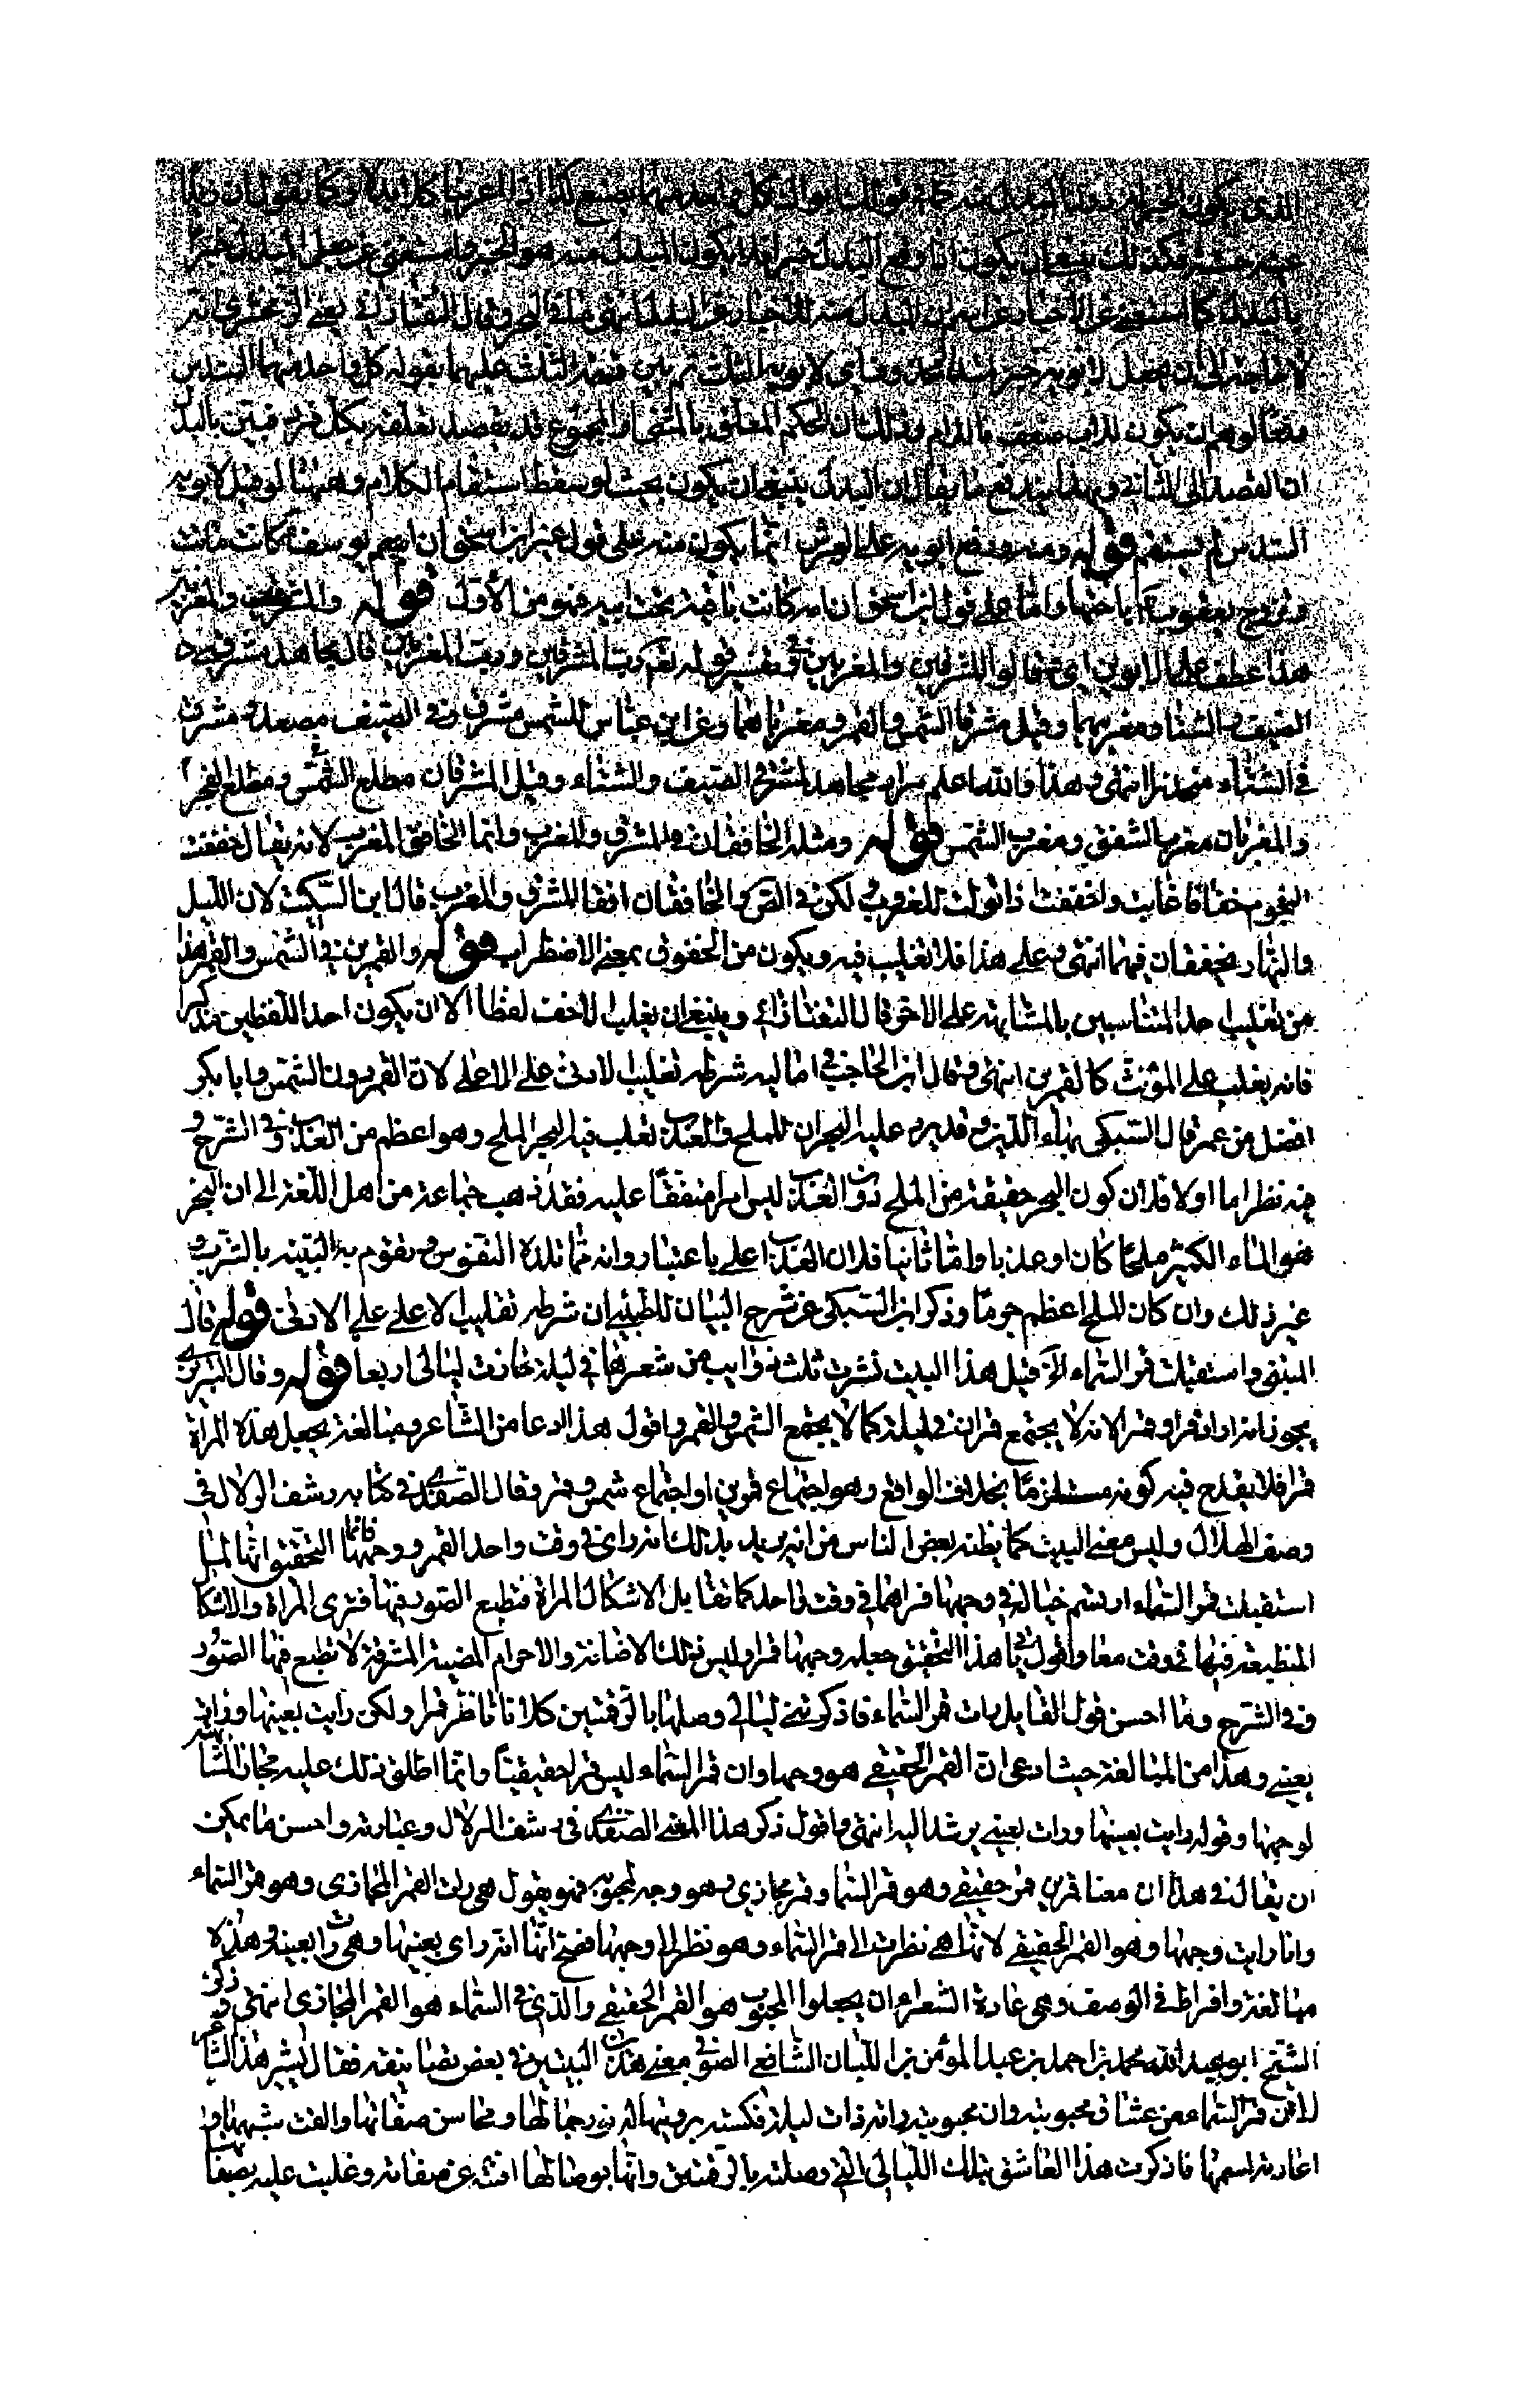 الذي يكون الخبر له دون المبدل منه كما في قولك ابواك كل واحد منهما يصنع كذا اذا اعربنا كل بدلا وكما تقول ان زيدا
عينه حسنة فكذلك ينبغي ان يكون اذا وقع البدل خبرا فلا يكون المبدل منه هو الخبر واستغنى عن جعل المبدل خبرا
بالبدل كما استغنى عن الاخبار عن اسم ان المبدل منه للاخبار عن البدل انتهى ما في البحر وقال التفتازاني يعني الزمخشري انه
لا حاجة الى ان يجعل لابويه خبر
مضافا لوهم ان يكون وذلك ان الحكم المعلق بالمثنى او المجموع قد يقصد تعلقه بكل فرد فبين بالبدل
ان القصد الى الثاني وبهذا يندفع ما يقال ان البدل ينبغي ان يكون بحيث لو سقط استقام الكلام وههنا لو قيل لابويه
السدس لم يستقم قوله ومنه ورفع ابويه على العرش انما يكون منه على قول غير ابن اسحق ان ام يوسف كانت ماتت
وتزوج يعقوب باختها واما على قول ابن اسحق ان امه كانت باقية تحت ابيه فهو من الاول قوله والمشرقين والمغربين
هذا عطف على الابوين اي وقالوا المشرقين والمغربين وفي تفسير قوله تعالى رب المشرقين ورب المغربين قال مجاهد مشرقي
الصيف والشتا ومغربيهما وقيل مشرقا الشمس والقمر ومغرباهما وعن ابن عباس للشمس مشرق في الصيف مصعد ومشرق
في الشتاء منحدر انتهى هذا والله اعلم مراد مجاهد بمشرقي الصيف والشتاء وقيل المشرقان مطلع الشمس ومطلع الفجر
والمغربان مغرب الشفق ومغرب الشمس قوله ومثله الخافقان في المشرق والمغرب وانما الخافق المغرب لانه يقال خفقت
النجوم خفقا غابت واخفقت اذا تولت للغروب لكن في الصحاح والخافقان افقا المشرق والمغرب قال ابن السكيت لان الليل
والنهار يخفقان فيهما انتهى وعلى هذا فلا تغليب فيه ويكون من الخفوق بمعنى الاضطراب قوله والقمرين في الشمس والقمر هذا
من تغليب احد المتناسبين بالمشابهة على الاخر قال التفتازاني وينبغي ان يغلب الاخف لفظا الا ان يكون احد اللفظين مذكرا
فانه يغلب على المؤنث كالقمرين انتهى وقال ابن الحاجب في اماليه شرطه تغليب الادنى على الاعلى لان القمر دون الشمس وابا بكر
افضل من عمر قال السبكي بهاء الدين وقد يرد عليه البحران للملح والعذب تغليب فيه البحر الملح وهو اعظم من العذب وفي الشرح و
فيه نظر اما اولا فلان كون البحر حقيقة من الملح دون العذب ليس امرا متفقا عليه فقد ذهب جماعة من اهل اللغة الى ان البحر
هو الماء الكثير ملحا كان او عذبا واما ثانيا فلان العذب اعلى باعتبار وانه مما تلذه النفوس وتقوم به البنية بالشرب و
غير ذلك وان كان الملح اعظم جرما وذكر ابن السبكي عن شرح البيان للطيبي ان شرطه تغليب الاعلى على الادنى قوله قال
المتنبي واستقبلت قمر السماء الخ قبل هذا البيت نشرت ثلث ذوايب من شعرها في ليلة فارت ليالي اربعا قوله وقال التبريزي
يجوز انه اراد قمرا وقمرا لانه لا يجتمع قمران في ليلة كما لا يجتمع الشمس والقمر واقول هذا ادعا من الشاعر ومبالغة بجعل هذه المراة
قمرا فلا يقدح فيه كونه مستلزما بخلاف الواقع وهو اجتماع قمرين او اجتماع شمس وقمر وقال الصفدي في كتابه رشف الزلال في
وصف الهلال وليس معنى البيت كما يظنه بعض الناس من انه يريد بذلك انه راى في وقت واحد القمر ووجهها فانما التحقيق انها لما
استقبلت قمر السماء ارتسم خياله في وجهها فراهما في وقت واحد كما تقابل الاشكال المراة فتطبع الصور فيها فترى المراة والاشكال
المنطبعة فيها في وقت معا واقول ينافي هذا التحقيق جعله وجهها قمرا وليس ذلك الاضائته والاجرام المضيئة المشرقة لا تطبع فيها الصور
وفي الشرح وما احسن قول القايل رات قمر السماء فاذكرتني ليالي وصلها بالرقمتين كلانا ناظر قمرا ولكن رايت بعينها ورات
بعيني وهذا من المبالغة حيث ادعى ان القمر الحقيقي هو وجهها وان قمر السماء ليس قمرا حقيقيا وانما اطلق ذلك عليه مجازا لمشابهته
لوجهها وقوله رايت بعينها ورات بعيني يرشد اليه انتهى واقول ذكر هذا المعنى الصفدي في رشف الزلال وعبارته واحسن ما يمكن
ان يقال في هذا ان معنا قمرين قمر حقيقي وهو قمر السما وقمر مجازي وهو وجه المحبوبه فهو يقول هي رات القمر المجازي وهو قمر السماء
وانا رايت وجهها وهو القمر الحقيقي لانها هي نظرت الى قمر السماء وهو نظر الى وجهها فصح انها انه راى بعينها وهي رات بعينه وهذه
مبالغة وافراط في الوصف وهي عادة الشعراء ان يجعلوا المحبوب هو القمر الحقيقي والذي في السماء هو القمر المجازي انتهى وذكر
الشيخ ابو عبد الله محمد بن احمد بن عبد المؤمن بن اللبان الشافعي الصوفي معنى هذين البيتين في بعض تصانيفه فقال يشير هذا الشاعر
لان قمر السماء من عشاق محبوبته وان محبوبته راته ذات ليلة فكسته برويتها له نور جمالها ومحاسن صفاتها والقت شبهها و
اعارته اسمها فاذكرت هذا العاشق بتلك الليالي التي وصلته بالرقمتين وانها بوصالها افنته عن صفاته وغلبت عليه بصفاتها